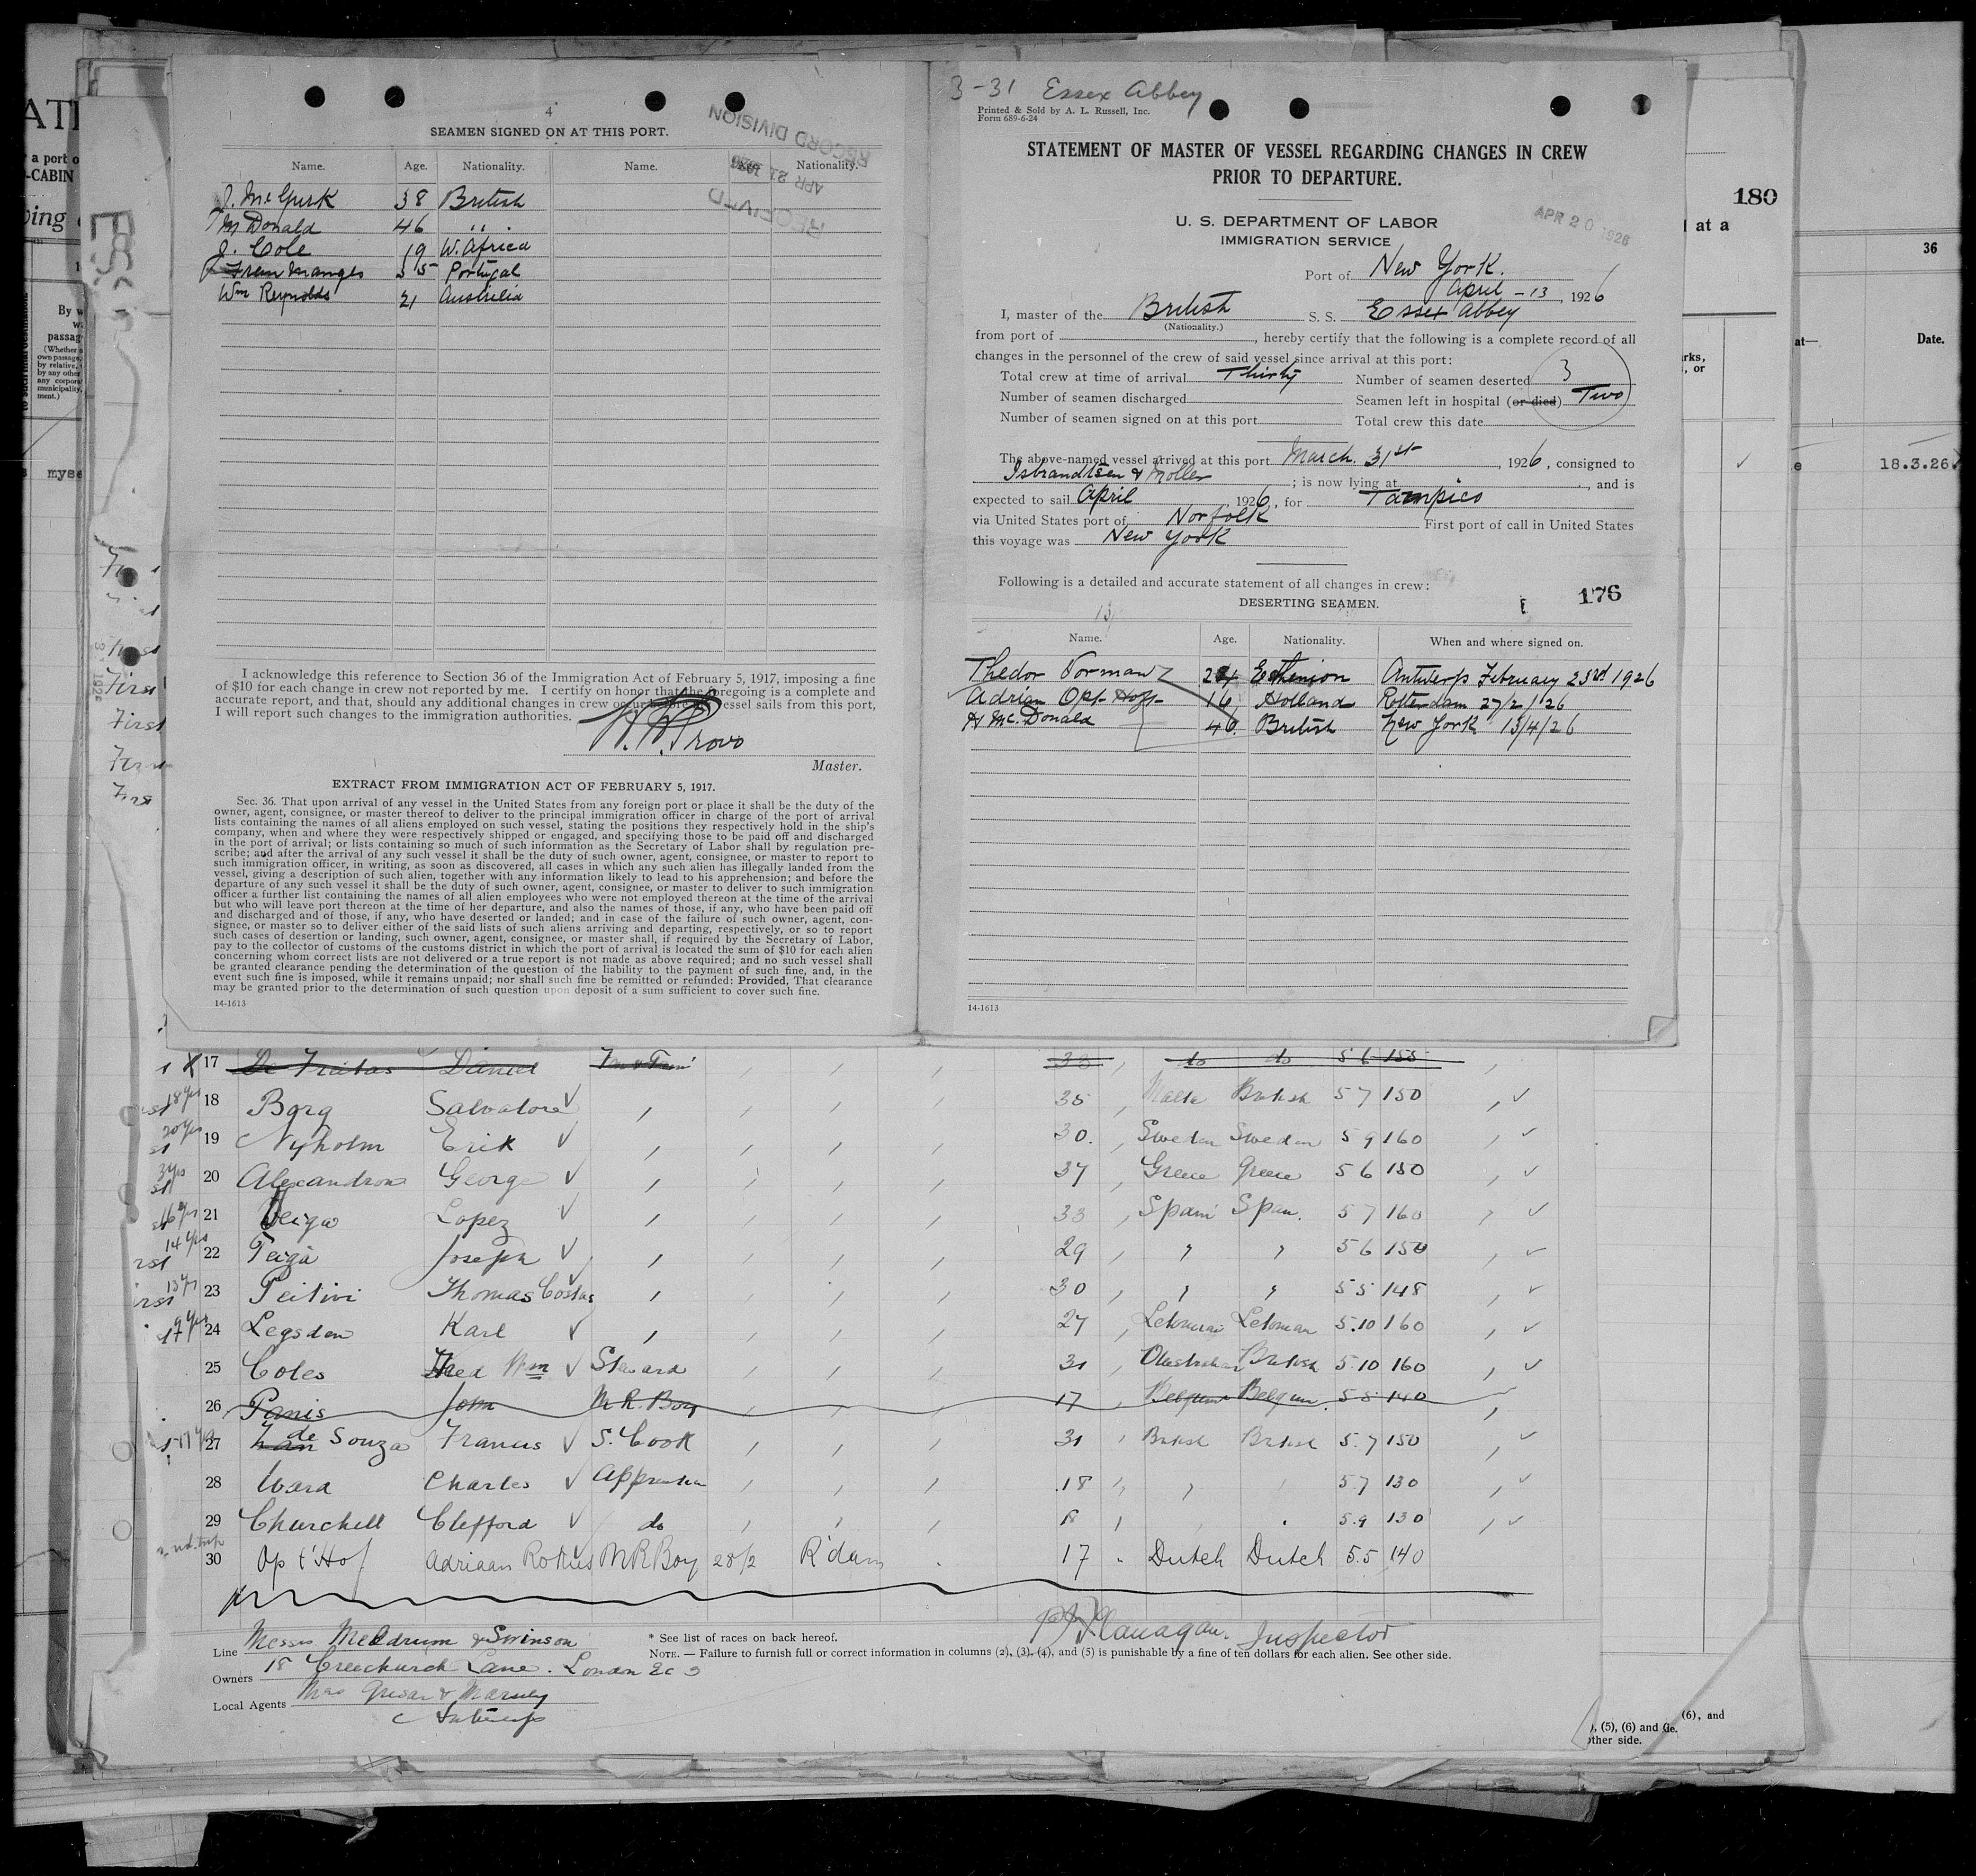 4
SEAMEN SIGNED ON AT THIS PORT.
RECORD DIVISION
APR 21 1926
RECEIVED
Name. Age. Nationality. Name. Age. Nationality.
J. McGurk 38 British
McDonald 46 " .
J. Cole 19 W. Africa
35 Portugal
Wm Reynolds 21 Australia
I acknowledge this reference to Section 36 of the Immigration Act of February 5, 1917, imposing a fine
of $10 for each change in crew not reported by me. I certify on honor that the foregoing is a complete and
accurate report, and that, should any additional changes in crew occur before the vessel sails from this port,
I will report such changes to the immigration authorities.
Provo
Master.
EXTRACT FROM IMMIGRATION ACT OF FEBRUARY 5, 1917.
Sec. 36. That upon arrival of any vessel in the United States from any foreign port or place it shall be the duty of the
owner, agent, consignee, or master thereof to deliver to the principal immigration officer in charge of the port of arrival
lists containing the names of all aliens employed on such vessel, stating the positions they respectively hold in the ship's
company, when and where they were respectively shipped or engaged, and specifying those to be paid off and discharged
in the port of arrival; or lists containing so much of such information as the Secretary of Labor shall by regulation pre-
scribe; and after the arrival of any such vessel it shall be the duty of such owner, agent, consignee, or master to report to
such immigration officer, in writing, as soon as discovered, all cases in which any such alien has illegally landed from the
vessel, giving a description of such alien, together with any information likely to lead to his apprehension; and before the
departure of any such vessel it shall be the duty of such owner, agent, consignee, or master to deliver to such immigration
officer a further list containing the names of all alien employees who were not employed thereon at the time of the arrival
but who will leave port thereon at the time of her departure, and also the names of those, if any, who have been paid off
and discharged and of those, if any, who have deserted or landed; and in case of the failure of such owner, agent, con-
signee, or master so to deliver either of the said lists of such aliens arriving and departing, respectively, or so to report
such cases of desertion or landing, such owner, agent, consignee, or master shall, if required by the Secretary of Labor,
pay to the collector of customs of the customs district in which the port of arrival is located the sum of $10 for each alien
concerning whom correct lists are not delivered or a true report is not made as above required; and no such vessel shall
be granted clearance pending the determination of the question of the liability to the payment of such fine, and, in the
event such fine is imposed, while it remains unpaid; nor shall such fine be remitted or refunded: Provided, That clearance
may be granted prior to the determination of such question upon deposit of a sum sufficient to cover such fine.
14-1613
3-31 Essex Abbey
Printed & Sold by A. L. Russell, Inc.
Form 689-6-24
STATEMENT OF MASTER OF VESSEL REGARDING CHANGES IN CREW
PRIOR TO DEPARTURE.
U. S. DEPARTMENT OF LABOR
IMMIGRATION SERVICE
APR 20 1926
Port of New York.
April -13, 1926
I, master of the British S. S. Essex Abbey
(Nationality.)
from port of , hereby certify that the following is a complete record of all
changes in the personnel of the crew of said vessel since arrival at this port:
Total crew at time of arrival Thirty Number of seamen deserted 3
Number of seamen discharged Seamen left in hospital (or died) Two
Number of seamen signed on at this port Total crew this date
The above-named vessel arrived at this port March. 31st, 1926, consigned to
Isbrandtsen & Moller ; is now lying at , and is
expected to sail April , 1926, for Tampico
via United States port of Norfolk First port of call in United States
this voyage was New York
Following is a detailed and accurate statement of all changes in crew:
DESERTING SEAMEN.
176
Name. Age. Nationality. When and where signed on.
Thedor Norman 24 Esthenion Antwerp February 23rd 1926
Adrian Opt Hoff 16 Holland Rotterdam 27/2/26
H McDonald 46 British New York 13/4/26
14-1613
17 De Freitas Daniel 33 do do 5 6 155
18 yrs 18 Borg Salvatore 35 Malta British 5 7 150
20 yrs 19 Nyholm Erik 30. Sweden Sweden 5 9 160
3 yrs 20 Alexandron George 37 Greece Greece 5 6 150
16 yr 21 Veiga Lopez 33 Spain Span. 5 7 160
14 yrs 22 Teiga Joseph 29 " " 5 6 150
13 yr 23 Peitivi Thomas Costas 30 " " 5 5 148
9 yrs 24 Legsden Karl 27 5.10 160
25 Coles Fred Wm Steward 31 Australian British 5.10 160
26 Panis John M.R. Boy 17 Belgium Belgium 5.5 140
27 de Souza Francis S. Cook 31 British British 5.7 150
28 Ward Charles Apprentice 18 " 5.7 130
29 Churchill Clifford do 18 5.9 130
30 Op t'Hof Adriaan Rokus M R Boy 28/2 R'dam 17 Dutch Dutch 5.5 140
P. Flanagan. Inspector
Line Messrs Meldrum & Swinson
Owners 18 Creechurch Lane. London EC 3
Local Agents Grisar & Marsily
Antwerp
* See list of races on back hereof.
NOTE. — Failure to furnish full or correct information in columns (2), (3), (4), and (5) is punishable by a fine of ten dollars for each alien. See other side.
a port o
-CABIN
By w
passag
(Whether
own passage,
by relative,
by any other
any corpora
municipality,
ment.)
myse
First
First
First
180
at a
36
at— Date.
rks,
, or
e 18.3.26.
(6), and
), (5), (6) and
other side.